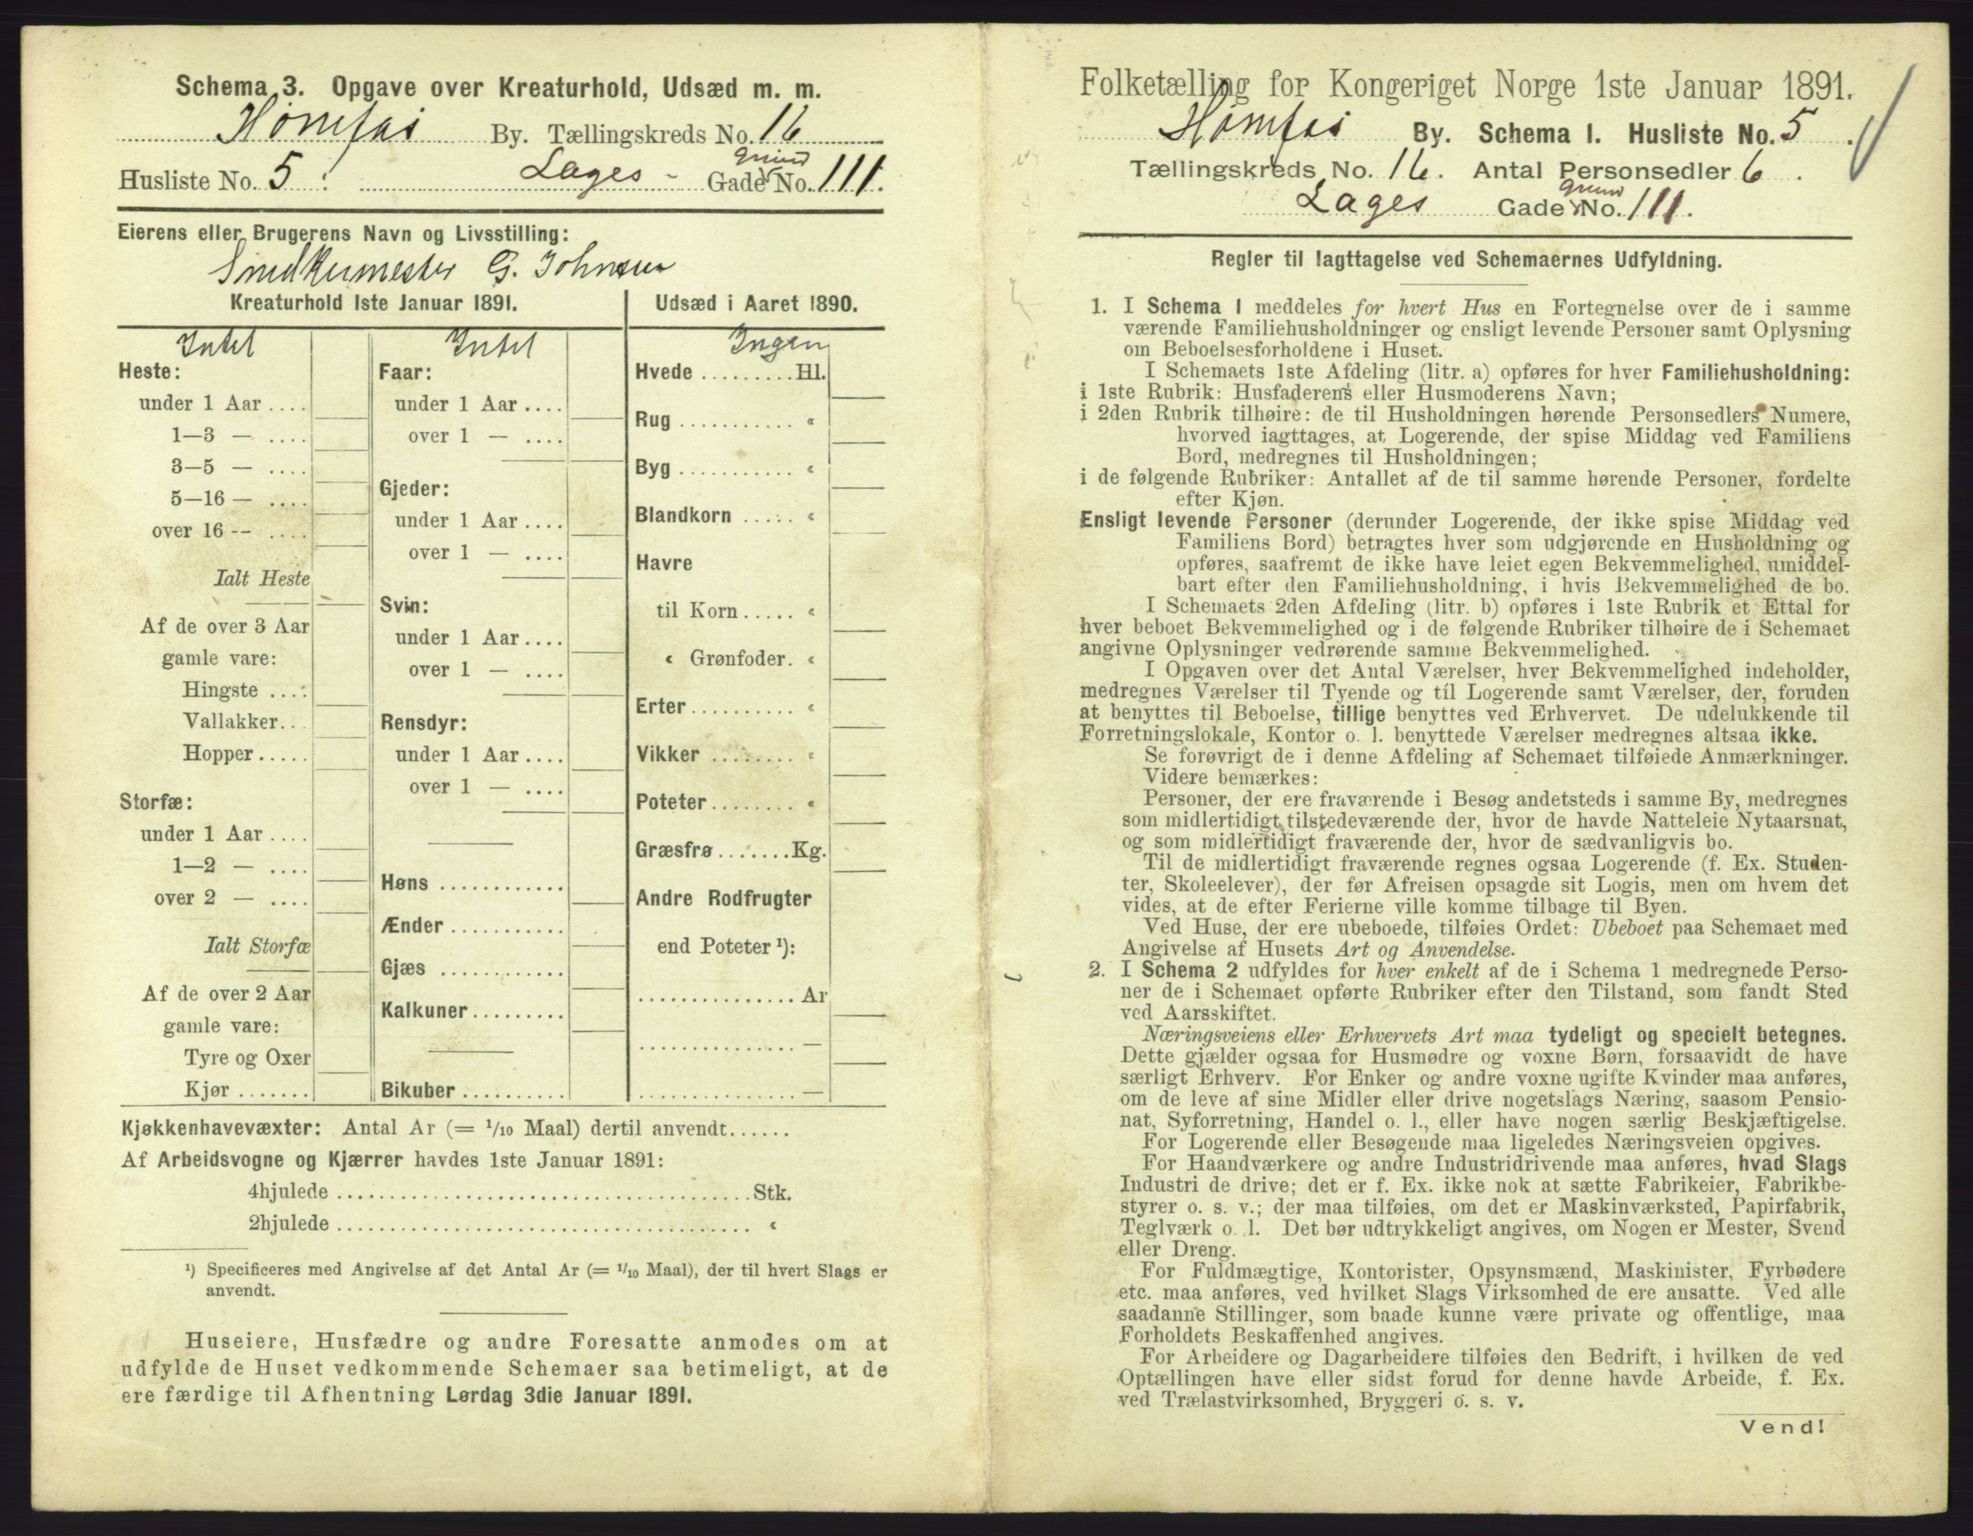 Schema 3. Opgave over Kreaturhold, Udsæd m. m.
Hønefos By. Tællingskreds No. 16
Husliste No. 5 : Lages - Gade Grund No. 111.
Eierens eller Brugerens Navn og Livsstilling:
Snedkermester G. Johnsen
Kreaturhold 1ste Januar 1891.
Intet
Heste:
under 1 Aar ....
1—3 — ....
3—5 — ....
5—16 — ....
over 16 -- ....
Ialt Heste
Af de over 3 Aar
gamle vare:
Hingste ....
Vallakker...
Hopper.....
Storfæ:
under 1 Aar ....
1—2 — ....
over 2 — ....
Ialt Storfæ
Af de over 2 Aar
gamle vare:
Tyre og Oxer
Kjør .......
Intet
Faar:
under 1 Aar ....
over 1 — ....
Gjeder:
under 1 Aar ....
over 1 — ....
Svin:
under 1 Aar ....
over 1 — ....
Rensdyr:
under 1 Aar ....
over 1 — ....
Høns ............
Ænder ...........
Gjæs ............
Kalkuner.........
Bikuber ..........
Udsæd i Aaret 1890.
Ingen
Hvede .........Hl.
Rug ........... «
Byg ........... «
Blandkorn ..... «
Havre
til Korn..... «
« Grønfoder. «
Erter.......... «
Vikker ........ «
Poteter........ «
Græsfrø.......Kg.
Andre Rodfrugter
end Poteter ¹):
............... Ar
............... —
............... —
Kjøkkenhavevæxter: Antal Ar (= 1/10 Maal) dertil anvendt......
Af Arbeidsvogne og Kjærrer havdes 1ste Januar 1891:
4hjulede ........................................Stk.
2hjulede ........................................ «
¹) Specificeres med Angivelse af det Antal Ar (= 1/10 Maal), der til hvert Slags er
anvendt.
Huseiere, Husfædre og andre Foresatte anmodes om at
udfylde de Huset vedkommende Schemaer saa betimeligt, at de
ere færdige til Afhentning Lørdag 3die Januar 1891.
Folketælling for Kongeriget Norge 1ste Januar 1891.
Hønefos By. Schema 1. Husliste No. 5.
Tællingskreds No. 16. Antal Personsedler 6.
Lages Gade Grund No. 111.
Regler til Iagttagelse ved Schemaernes Udfyldning.
1. I Schema 1 meddeles for hvert Hus en Fortegnelse over de i samme
værende Familiehusholdninger og ensligt levende Personer samt Oplysning
om Beboelsesforholdene i Huset.
I Schemaets 1ste Afdeling (litr. a) opføres for hver Familiehusholdning:
i 1ste Rubrik: Husfaderens eller Husmoderens Navn;
i 2den Rubrik tilhøire: de til Husholdningen hørende Personsedlers Numere,
hvorved iagttages, at Logerende, der spise Middag ved Familiens
Bord, medregnes til Husholdningen;
i de følgende Rubriker: Antallet af de til samme hørende Personer, fordelte
efter Kjøn.
Ensligt levende Personer (derunder Logerende, der ikke spise Middag ved
Familiens Bord) betragtes hver som udgjørende en Husholdning og
opføres, saafremt de ikke have leiet egen Bekvemmelighed, umiddel-
bart efter den Familiehusholdning, i hvis Bekvemmelighed de bo.
I Schemaets 2den Afdeling (litr. b) opføres i 1ste Rubrik et Ettal for
hver beboet Bekvemmelighed og i de følgende Rubriker tilhøire de i Schemaet
angivne Oplysninger vedrørende samme Bekvemmelighed.
I Opgaven over det Antal Værelser, hver Bekvemmelighed indeholder,
medregnes Værelser til Tyende og til Logerende samt Værelser, der, foruden
at benyttes til Beboelse, tillige benyttes ved Erhvervet. De udelukkende til
Forretningslokale, Kontor o. l. benyttede Værelser medregnes altsaa ikke.
Se forøvrigt de i denne Afdeling af Schemaet tilføiede Anmærkninger.
Videre bemærkes:
Personer, der ere fraværende i Besøg andetsteds i samme By, medregnes
som midlertidigt tilstedeværende der, hvor de havde Natteleie Nytaarsnat,
og som midlertidigt fraværende der, hvor de sædvanligvis bo.
Til de midlertidigt fraværende regnes ogsaa Logerende (f. Ex. Studen-
ter, Skoleelever), der før Afreisen opsagde sit Logis, men om hvem det
vides, at de efter Ferierne ville komme tilbage til Byen.
Ved Huse, der ere ubeboede, tilføies Ordet: Ubeboet paa Schemaet med
Angivelse af Husets Art og Anvendelse.
2. I Schema 2 udfyldes for hver enkelt af de i Schema 1 medregnede Perso-
ner de i Schemaet opførte Rubriker efter den Tilstand, som fandt Sted
ved Aarsskiftet.
Næringsveiens eller Erhvervets Art maa tydeligt og specielt betegnes.
Dette gjælder ogsaa for Husmødre og voxne Børn, forsaavidt de have
særligt Erhverv. For Enker og andre voxne ugifte Kvinder maa anføres,
om de leve af sine Midler eller drive nogetslags Næring, saasom Pensio-
nat, Syforretning, Handel o. l., eller have nogen særlig Beskjæftigelse.
For Logerende eller Besøgende maa ligeledes Næringsveien opgives.
For Haandværkere og andre Industridrivende maa anføres, hvad Slags
Industri de drive; det er f. Ex. ikke nok at sætte Fabrikeier, Fabrikbe-
styrer o. s. v.; der maa tilføies, om det er Maskinværksted, Papirfabrik,
Teglværk o. l. Det bør udtrykkeligt angives, om Nogen er Mester, Svend
eller Dreng.
For Fuldmægtige, Kontorister, Opsynsmænd, Maskinister, Fyrbødere
etc. maa anføres, ved hvilket Slags Virksomhed de ere ansatte. Ved alle
saadanne Stillinger, som baade kunne være private og offentlige, maa
Forholdets Beskaffenhed angives.
For Arbeidere og Dagarbeidere tilføies den Bedrift, i hvilken de ved
Optællingen have eller sidst forud for denne havde Arbeide, f. Ex.
ved Trælastvirksomhed, Bryggeri o. s. v.
Vend!